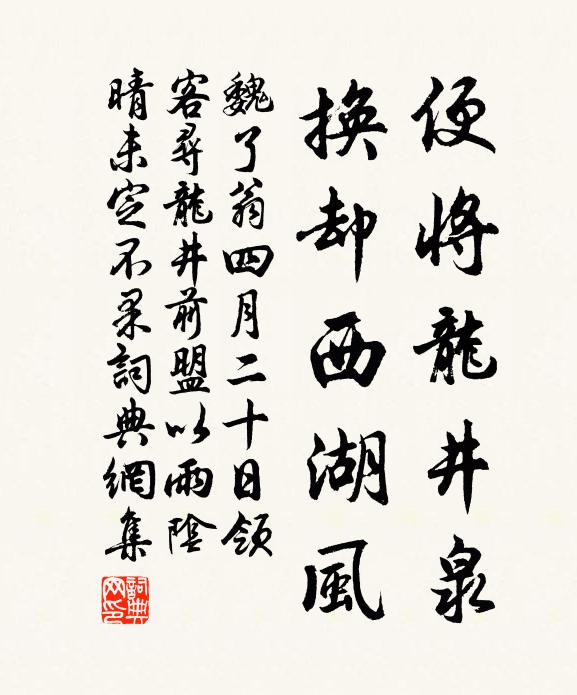 便將龍井泉
換却西湖風
魏了翁四月二十日領
客尋龍井前盟以雨陰
晴未定不果詞典網集
詞典网印